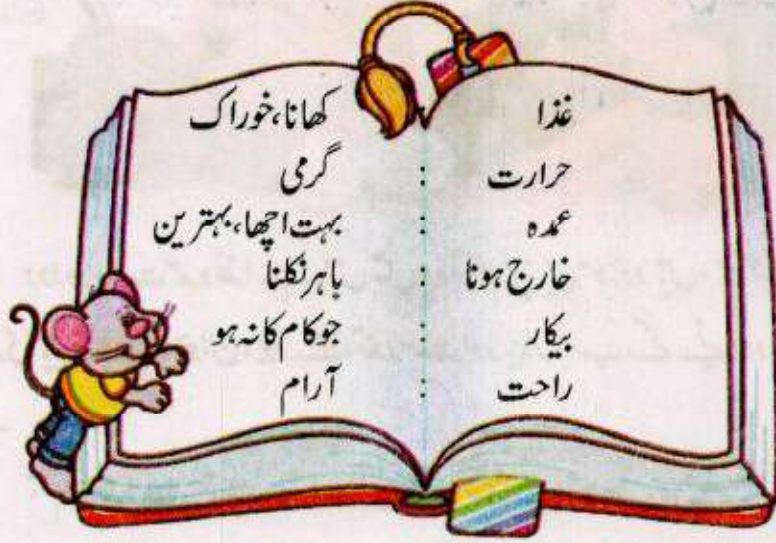 غذا کھانا، خوراک
حرارت : گرمی
عمدہ : بہت اچھا، بہترین
خارج ہونا : باہر نکلنا
بیکار : جو کام کا نہ ہو
راحت : آرام